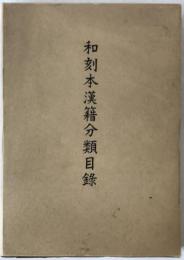 和刻本漢籍分類目録